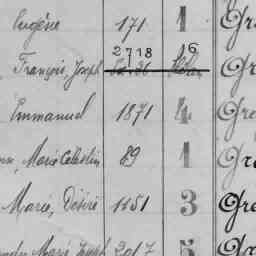 Eugène 171 1 Gr
2718 6
François, Joseph Gr
Emmanuel 1871 4 Gre
Marie Célestin 89 1 Gra
Marie, Désiré 1151 3 Gre
Marie Joseph 2017 5 Gr